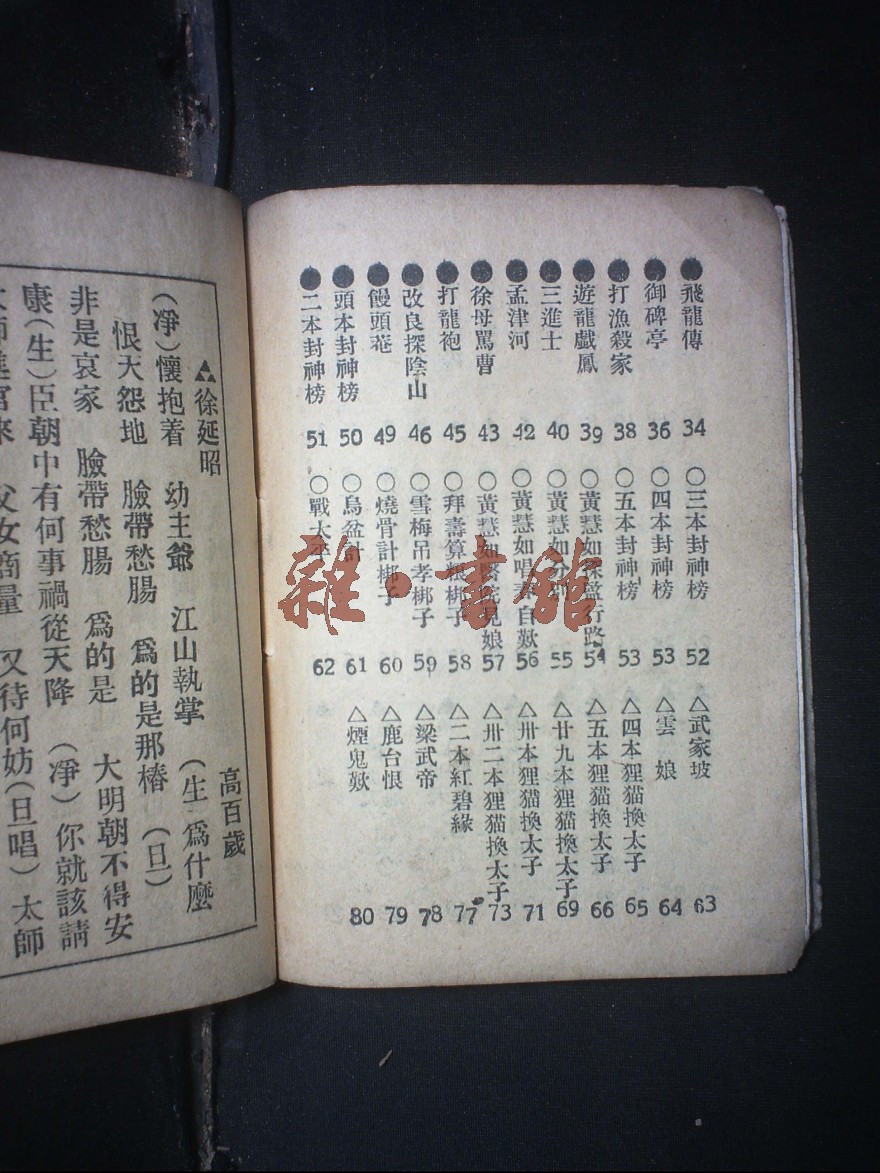 飛龍傳 34
御碑亭 36
打漁殺家 38
遊龍戲鳳 39
三進士 40
孟津河 42
徐母罵曹 43
打龍袍 45
改良探陰山 46
饅頭菴 49
頭本封神榜 50
二本封神榜 51
○三本封神榜 52
○四本封神榜 53
○五本封神榜 53
○黃慧如 行路 54
○黃慧如 55
○黃慧如唱 自歎 56
○黃慧如 見娘 57
○拜壽算粮梆子 58
○雪梅吊孝梆子 59
○燒骨計梆子 60
○烏盆計 61
○戰太平 62
△武家坡 63
△雲 娘 64
△四本狸猫換太子 65
△五本狸猫換太子 66
△廿九本狸猫換太子 69
△卅本狸猫換太子 71
△卅二本狸猫換太子 73
△二本紅碧緣 77
△梁武帝 78
△鹿台恨 79
△煙鬼歎 80
徐延昭 高百歲
(凈)懷抱着 幼主爺 江山執掌 (生)爲什麼
恨天怨地 臉帶愁腸 爲的是那樁 (旦)
非是哀家 臉帶愁腸 爲的是 大明朝不得安
康(生)臣朝中有何事禍從天降 (凈)你就該請
太師進宮來 父女商量 又待何妨(旦唱)太師
雜·書館